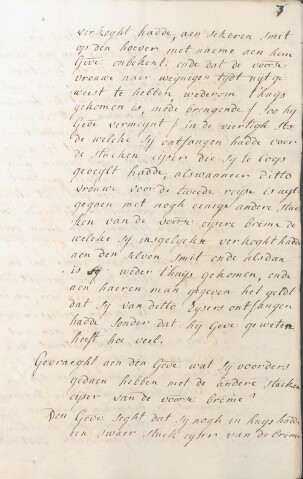 7
verkoght hadde, aen sekeren smit
op den hoeger met naeme aen hem
Geve onbekent. ende dat de voors
vrouwe naer weijnigen tijdt uijt ge
weest te hebben wederom t'huijs
gekomen is, mede brengende / soo hij
Geve vermeijnt / in de veertigh
de welcke sij ontfangen hadde voor
de stucken eijser die sij te loops
geveijlt hadde, alswanneer ditto
vrouwe voor de tweede reijse is uijt
gegaen met nogh eenige andere stuc
ken van de voors eijsere breme de
welcke sij insgelijckx verkoght hadde
aen den selven smit ende alsdan
is sij weder t'huijs gekomen, ende
aen haeren man gegeven het geldt
dat sij van ditto eijsers ontfangen
hadde sonder dat hij Geve geweten
heeft hoe veel.
Gevraeght aen den Geve wat sij voorders
gedaen hebben met de andere stucken
eijser van de voors breme?
Den Geve seght dat sij nogh en huijs hadde
een swaer stuck eijser van de breme